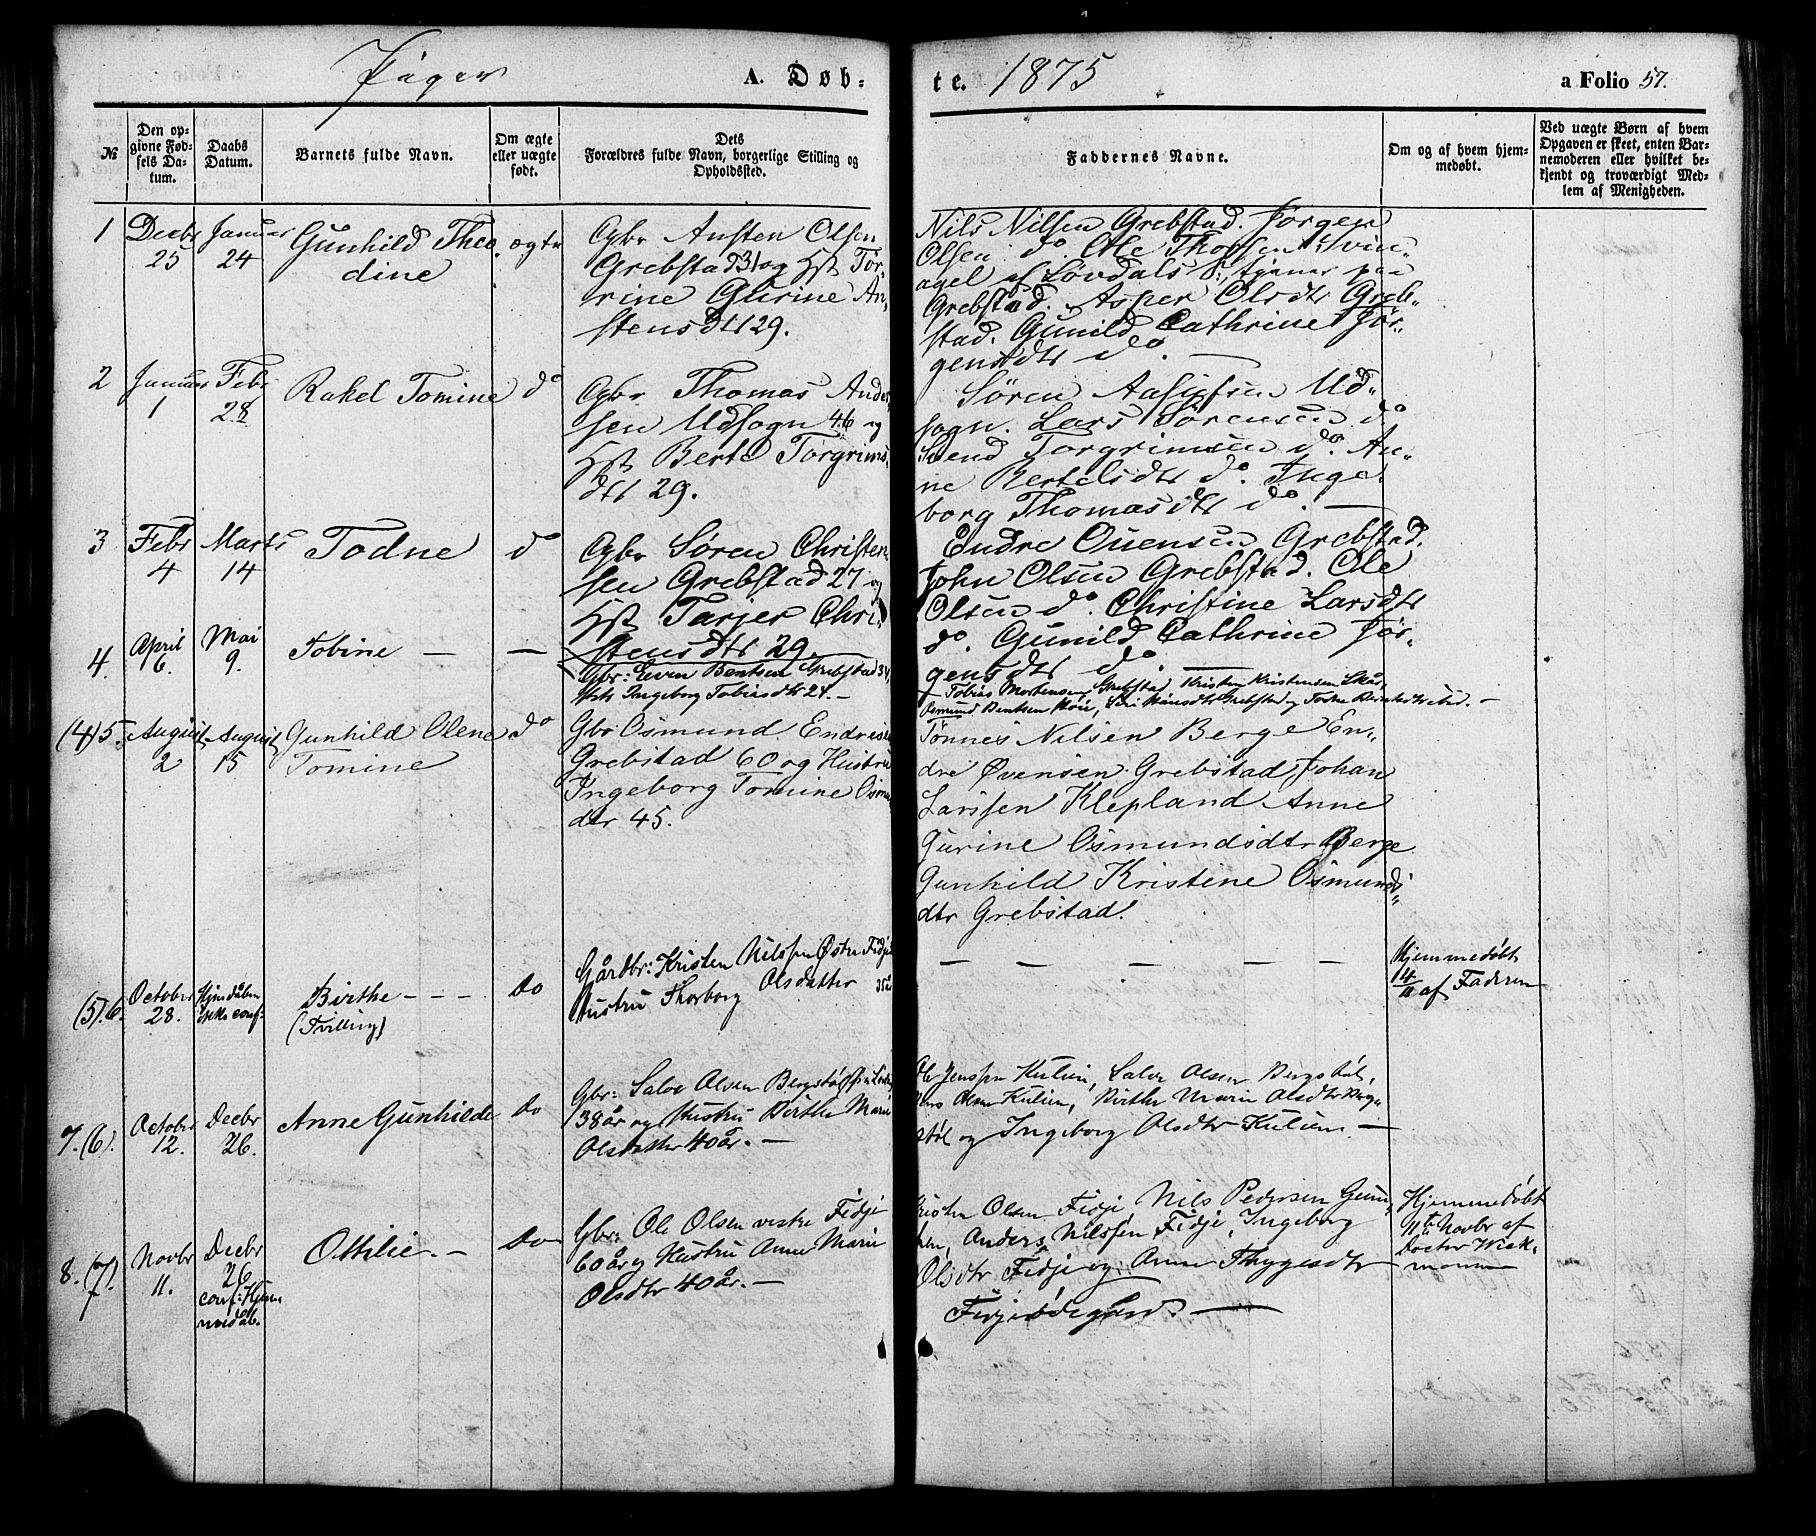 Piger
A. Døb-
te. 1875
a Folio 57.
№
Den op-
givne Fød-
sels Da-
tum.
Daabs
Datum.
Barnets fulde Navn.
Om ægte
eller uægte
født.
Dets
Forældres fulde Navn, borgerlige Stilling og
Opholdssted.
Faddernes Navne.
Om og af hvem hjem-
medøbt.
Ved uægte Børn af hvem
Opgaven er skeet, enten Bar-
nemoderen eller hvilket be-
kjendt og troværdigt Med-
lem af Menigheden.
1
Decbr
25
Januar
24
Gunhild Theo-
dine
ægte
Gbr Ansten Olsen
Grebstad 31 og Hst Tor-
rine Gurine An-
stensdtr 29.
Nils Nilsen Grebstad. Jørgen
Olsen do Ole
agel af Løvdals S: tjener paa
Grebstad. Asper Olsdtr Greb-
stad. Gunild Cathrine Jør-
gensdtr do. —
2
Januar
1
Febr
28
Rakel Tomine
do
Gbr Thomas Ander-
sen Udsogn 46 og
Hst Berte Torgrims-
dtr 29.
Søren Aslufsen Ud-
sogn. Lars Sørensen do
Svend Torgrimsen do. An-
ne Bertelsdtr do. Inge-
borg Thomasdtr do. —
3
Febr
4
Marts
14
Todne
do
Gbr Søren Christen-
sen Grebstad 27 og
Hst Tarjer Chri-
stensdtr 29.
Endre Ouensen Grebstad.
John Olsen Grebstad. Ole
Olsen do. Christine Larsdtr
do. Gunild Cathrine Jør-
gensdtr do.
4.
April
6.
Mai
9.
Tobine —
—
Gbr: Even Bentsen Grebstad 34,
Hst Ingeborg Tobiasdtr 24. —
Tobias Mortensen Grebstad, Kristen Kristensen Skår,
Osmund Bentsen Møie, Siri Hansdtr Grebstad og Todne ibid. —
(4) 5.
August
2
August
15
Gunhild Olene
Tomine
do
Gbr Osmund Endresen
Grebstad 60 og Hustru
Ingeborg Tomine Osmu
dtr 45.
Tønnes Nilsen Berge En-
dre Øvensen Grebstad, Johan
Larssen Klepland Anne
Gurine Osmundsdtr Berge
Gunhild Kristine Osmunds-
dtr Grebstad.
(5). 6.
October
28.
Hjmdåben
ikke conf:
Birthe - - -
(Tvilling)
Do
Gårdbr: Kristen Nilssen Østre Fidje
Hustru Thorborg Olsdatter 35 år
— — — — —
Hjemmedøbt
4/11 af Faderen
7. (6).
October
12.
Decbr
26.
Anne Gunhilde
Do
Gbr: Salve Olsen Bergstøl
38 år og Hustru Birthe Marie
Olsdatter 40 år. —
Ole Jenssen Kulien, Salve Olsen Bergstøl,
Jens Olsen Kulien, Birthe Marie Olsdtr Berg-
støl og Ingeborg Olsdtr Kulien. —
8. (7).
Novbr
11.
Decbr
26
conf: Hjem-
medåb.
Ottilie. —
Do
Gbr: Ole Olsen vestre Fidje
60 år og Hustru Anne Marie
Olsdtr 40 år. —
Kristen Olsen Fidje, Nils Pedersen Geum-
pen, Anders Nilssen Fidje, Ingeborg
Olsdtr Fidje og Anne Thygesdtr
Fidjeødegård. —
Hjemmedøbt
11te Novbr af
Doctor Wiek-
mann